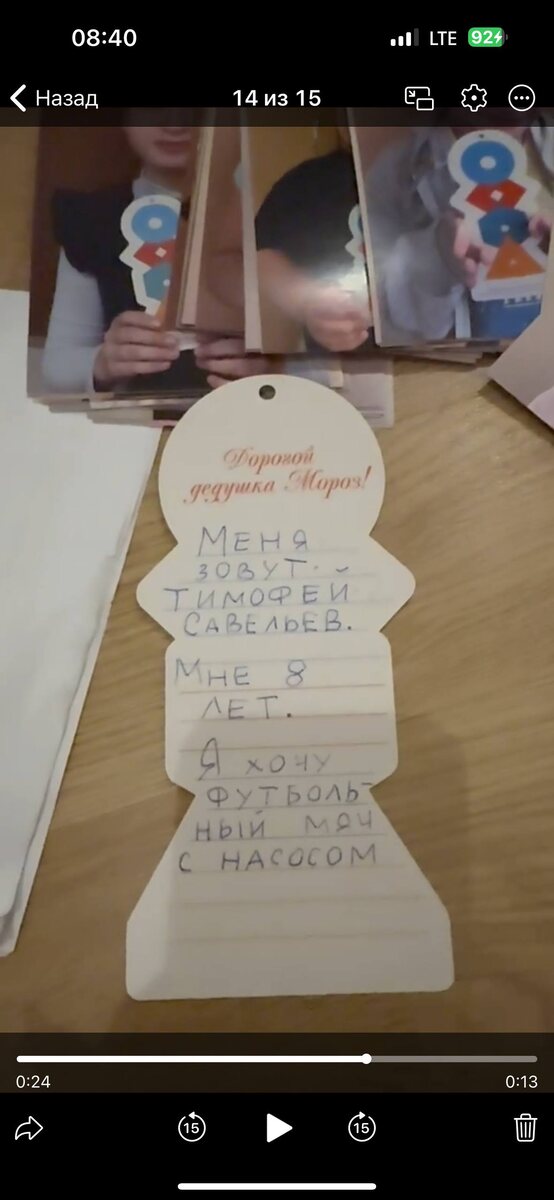 08:40
LTE
92
Назад
14 из 15
Дорогой
дедушка Мороз!
МЕНЯ
ЗОВУТ.
ТИМОФЕЙ
САВЕЛЬЕВ.
МНЕ 8
ЛЕТ.
Я ХОЧУ
ФУТБОЛЬ-
НЫЙ МЯЧ
С НАСОСОМ
0:24
0:13
15
15